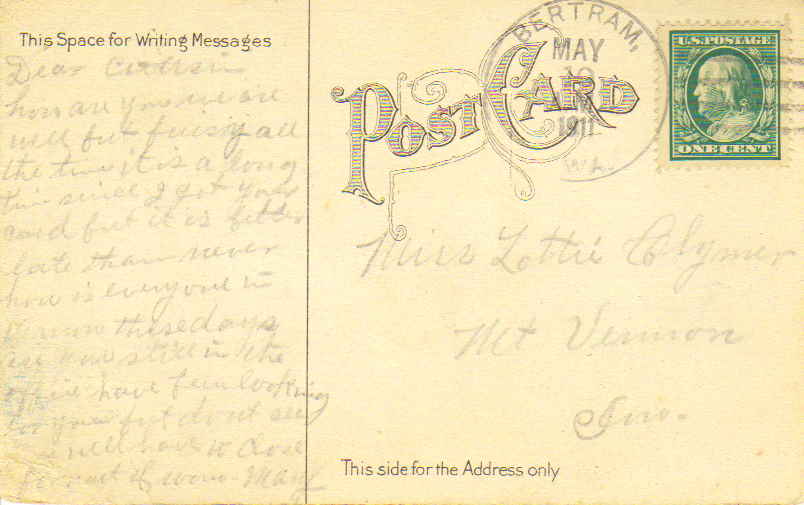 This Space for Writing Messages
Dear
how are you we are
well but busy all
the time it is a long
time since I got your
card but it is better
late than never
how is everyone in
Vernon these days
are you still in the
have been looking
for you but don't see
well have to close
for want of room - Mary
POST CARD
BERTRAM,
MAY
1911
U.S. POSTAGE
ONE CENT
Miss Lottie Clymer
Mt Vernon
This side for the Address only